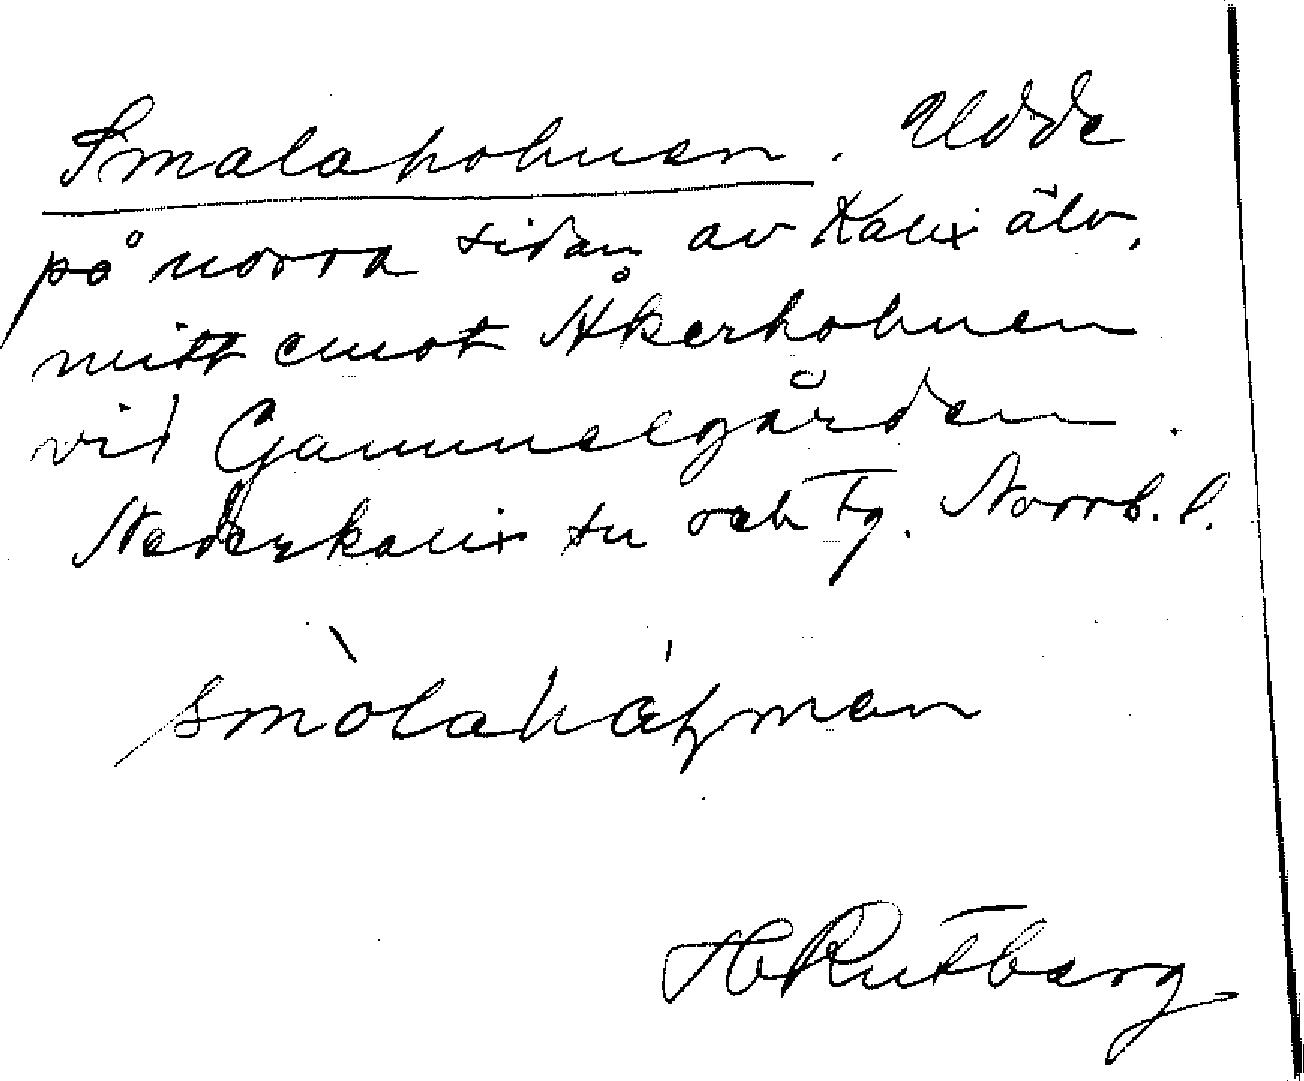 Smalaholmen. Udde
på norra sidan av Kalix älv,
mitt emot Åkerholmen
vid Gammelgården.
Nederkalix sn och Tg. Norrb. l.
H Rutberg